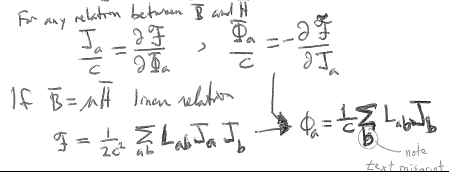 For any relation between B̄ and H̄
J_a/c = ∂ℱ/∂Φ_a , Φ_a/c = -∂ℱ̃/∂J_a
If B̄ = μH̄ linear relation
ℱ = 1/2c² Σ_ab L_ab J_a J_b → φ_a = 1/c Σ_b L_ab J_b
note
text misprint